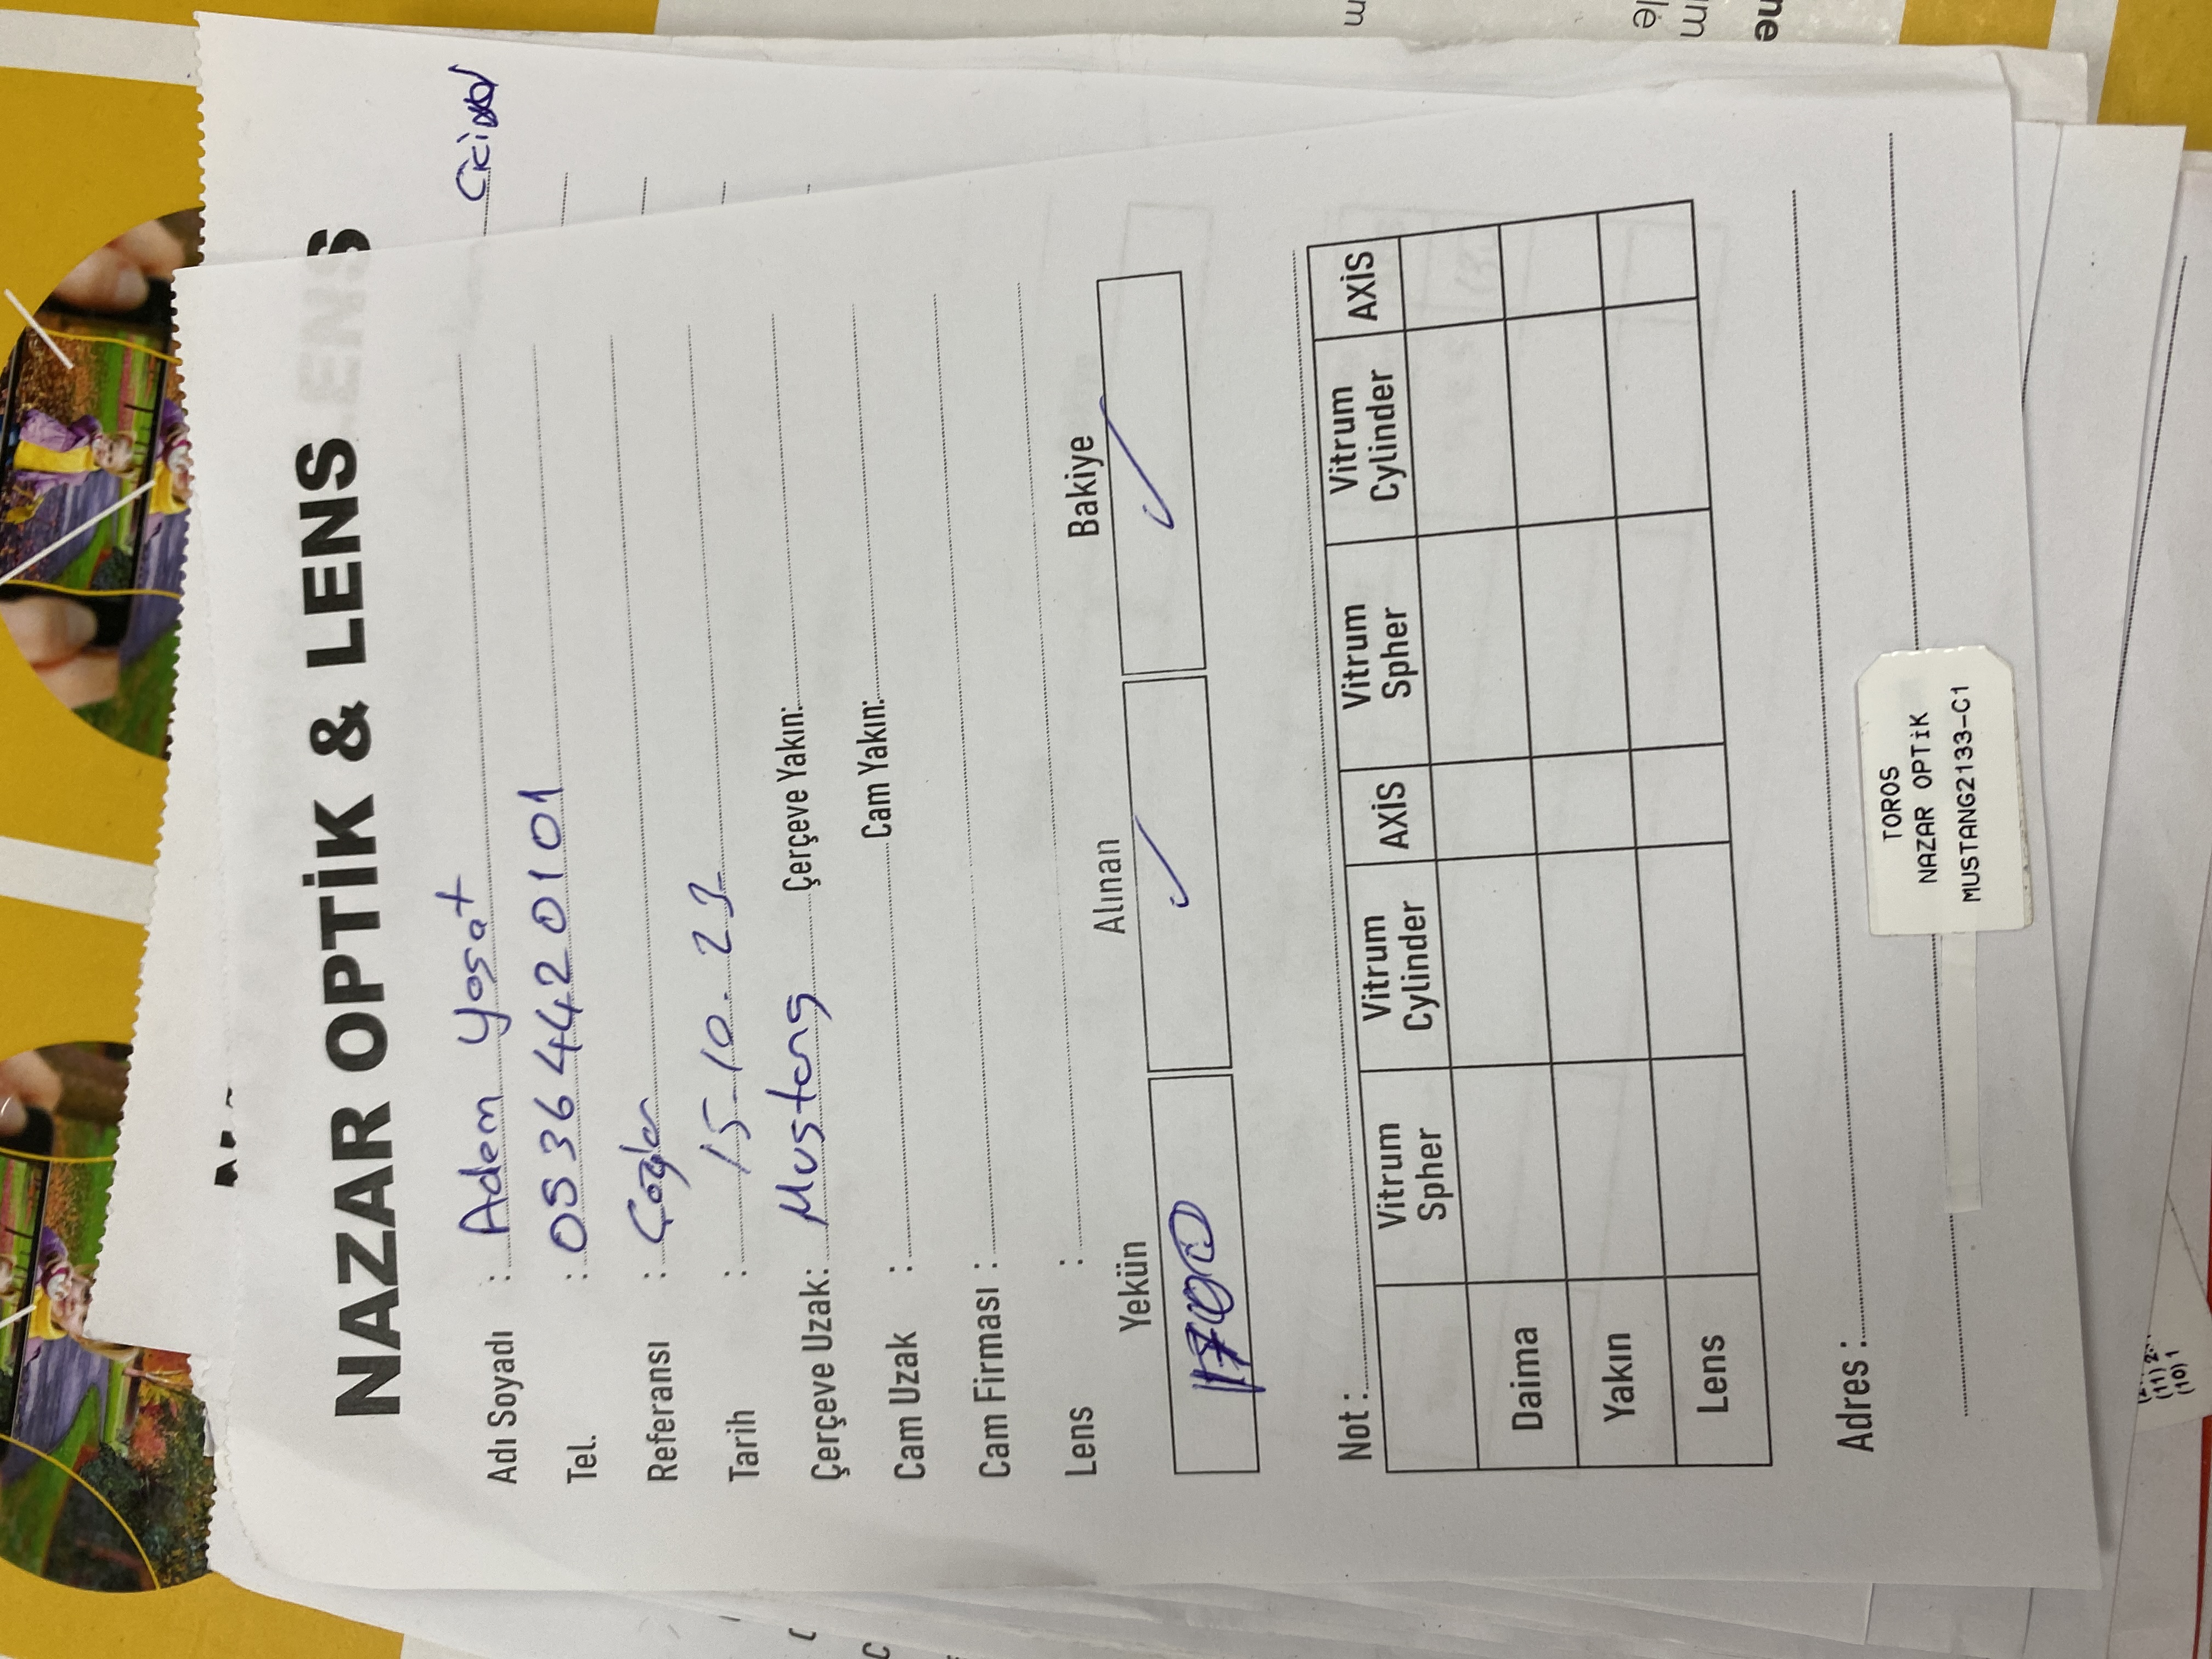 NAZAR OPTİK & LENS
S
Adı Soyadı : Adem Yaşat
Tel. : 0536 442 0101
Referansı : Çağlar
Tarih : 15-10.23
Çerçeve Uzak: Mustang Çerçeve Yakın:
Cam Uzak : Cam Yakın:
Cam Firması :
Lens :
Yekün Alınan Bakiye
1700 ✓ ✓
Not :
Vitrum Spher Vitrum Cylinder AXİS Vitrum Spher Vitrum Cylinder AXİS
Daima
Yakın
Lens
Adres :
TOROS
NAZAR OPTİK
MUSTANG2133-C1
(10) 1